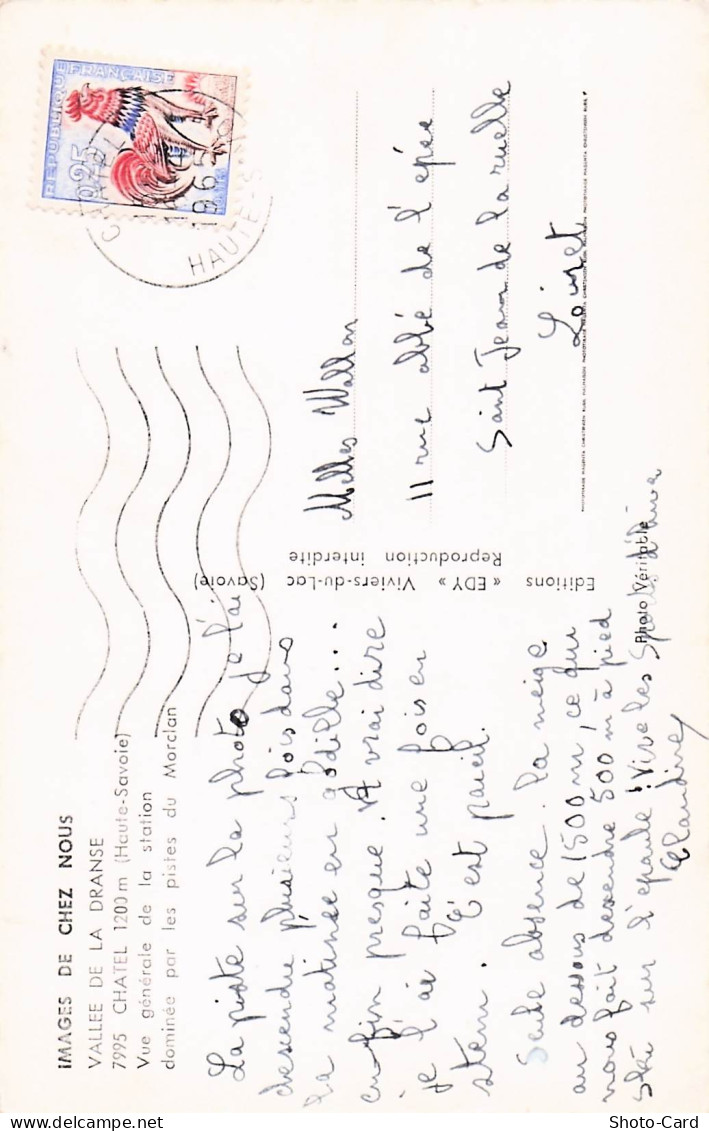 IMAGES DE CHEZ NOUS
VALLEE DE LA DRANSE
7995 CHATEL 1200 m (Haute-Savoie)
Vue générale de la station
dominée par les pistes du Morclan
La piste sur la photo je l'ai
descendu plusieurs fois dans
la matinée en godille...
enfin presque. A vrai dire
je l'ai faite une fois en
stem. C'est pareil.
Seule absence. la neige
au dessous de 1500 m, ce qui
nous fait descendre 500 m à pied
ski sur l'épaule ! Vive les Sports d'hiver
Claudine
Editions « EDY » Viviers-du-Lac (Savoie)
Reproduction interdite
Photo Véritable
REPUBLIQUE FRANÇAISE
0,25
CHATEL
1965
HAUTE-S
Melles Wallon
11 rue abbé de l'épée
Saint Jean de la ruelle
Loiret
Shoto-Card